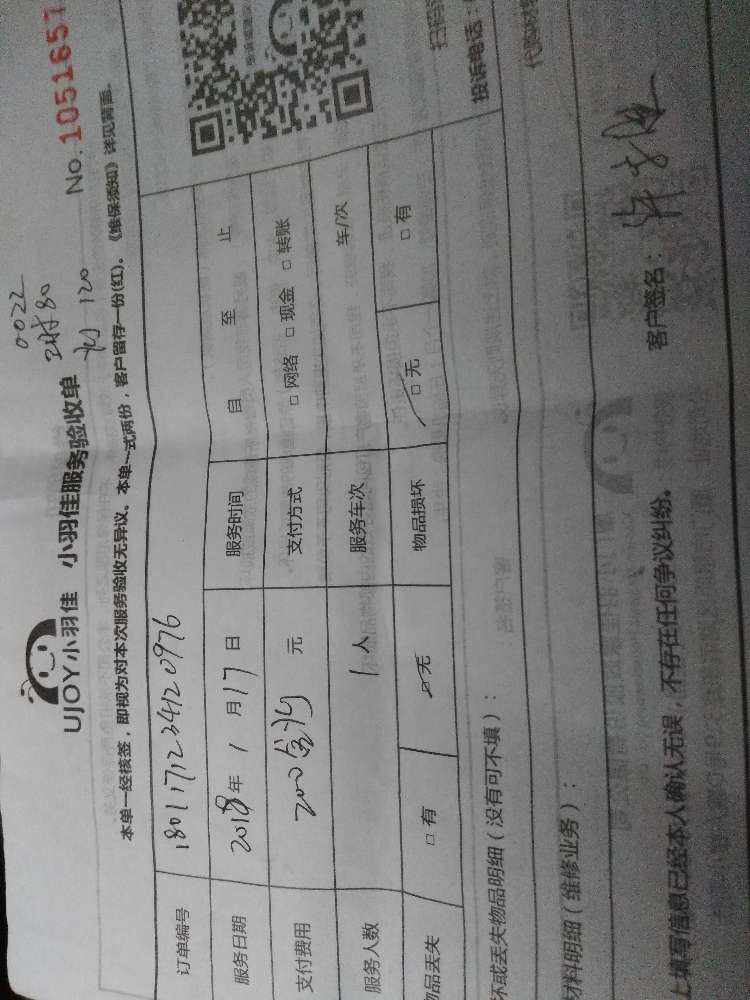 0022
2时80
120
UJOY小羽佳 小羽佳服务验收单 No.1051657
本单一经核签，即视为对本次服务验收无异议。本单一式两份，客户留存一份(红)。《维保须知》详见背面。
订单编号 180117123420976
服务日期 2018年 1 月 17 日 服务时间 自 至 止
支付费用 200 元 支付方式 □ 网络 □ 现金 □ 转账
服务人数 1 人 服务车次 车/次
品丢失 □ 有 □ 无 物品损坏 □ 无 □ 有
坏或丢失物品明细（没有可不填）：
材料明细（维修业务）：
上填写信息已经本人确认无误，不存在任何争议纠纷。
客户签名：
扫码
投诉电话：
代购材料